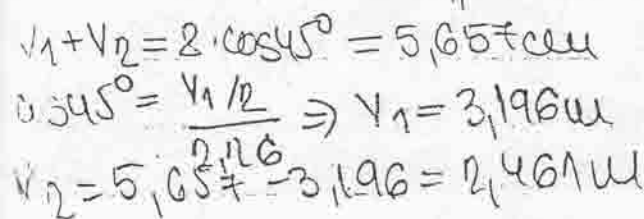 V1+V2=8·cos45°=5,657cm
cos45°=\frac{V1/2}{2,26} ⇒ V1=3,196cm
V2=5,657-3,196=2,461cm